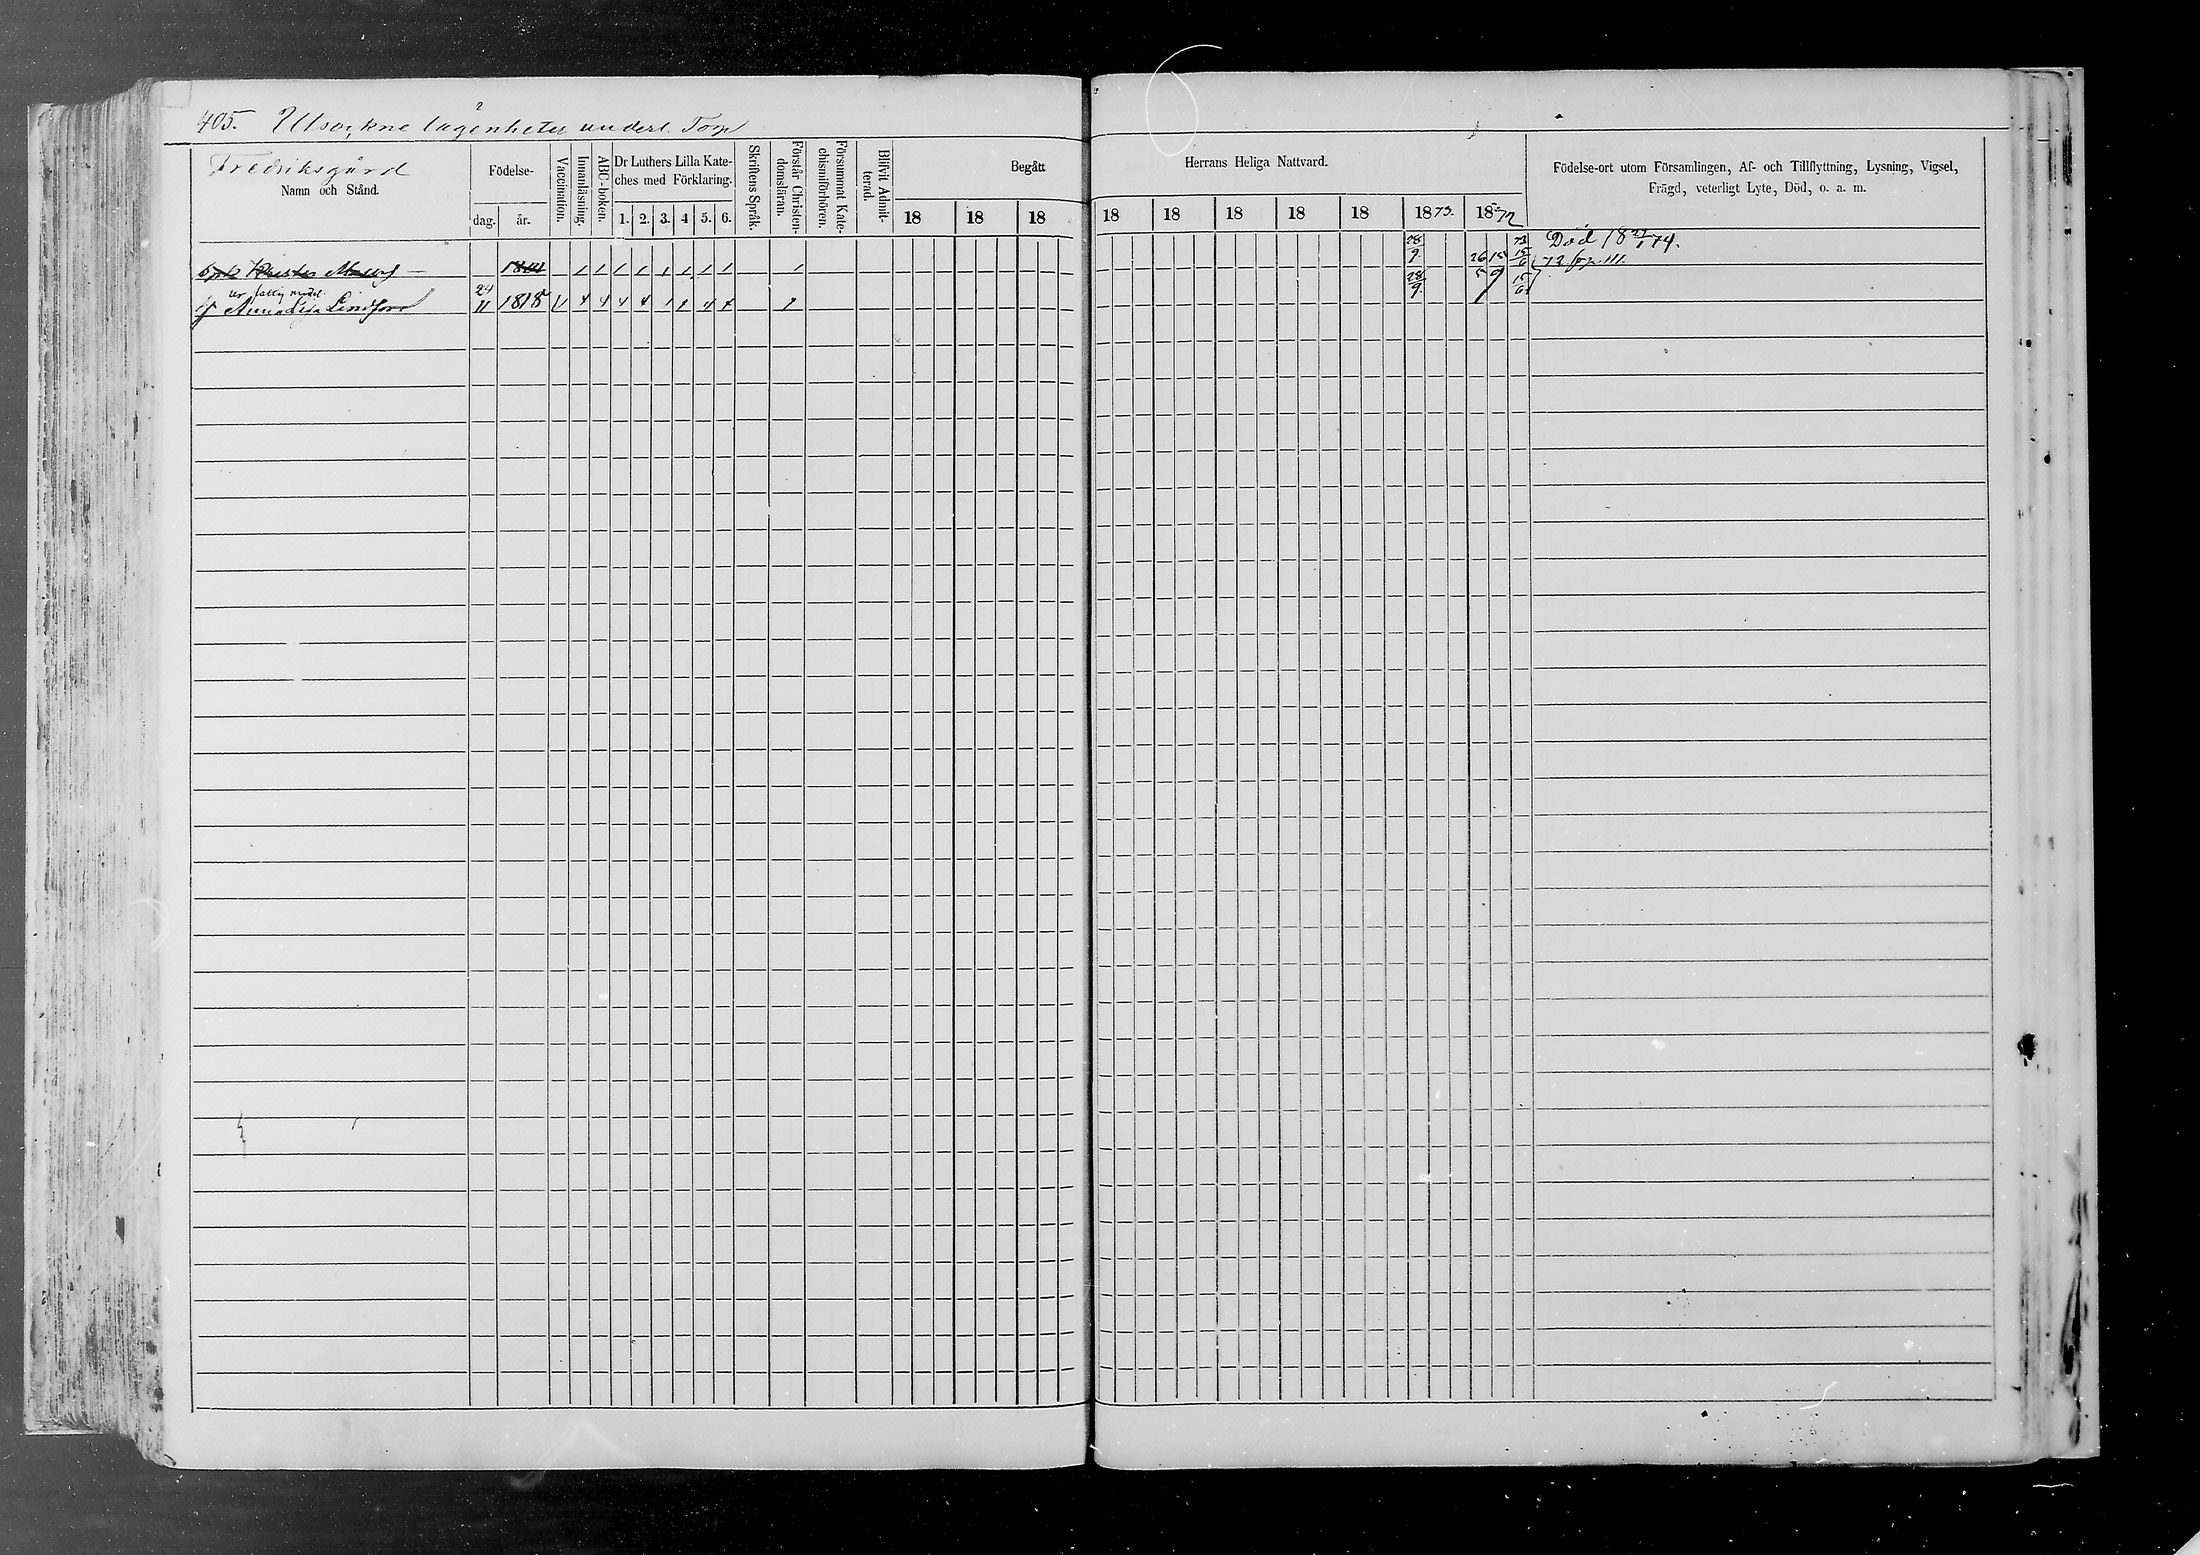 405. Utsockne lägenheter underl. Torp
Fredriksgård
Namn och Stånd.
Födelse-
dag. år.
Vaccination.
Innanläsning.
ABC-boken.
Dr Luthers Lilla Kate-
ches med Förklaring.
1. 2. 3. 4 5. 6.
Skriftens Språk.
Förstår Christen-
domsläran.
Försummat Kate-
chismiförhören.
Blifvit Admit-
terad.
Begått
18 18 18
Herrans Heliga Nattvard.
18 18 18 18 18 1873. 1872
Födelse-ort utom Församlingen, Af- och Tillflyttning, Lysning, Vigsel,
Frägd, veterligt Lyte, Död, o. a. m.
28/9 26 15 Död 18 /74.
72 111
Anna Lisa 24/11 1818
28/9 5 9 15/6